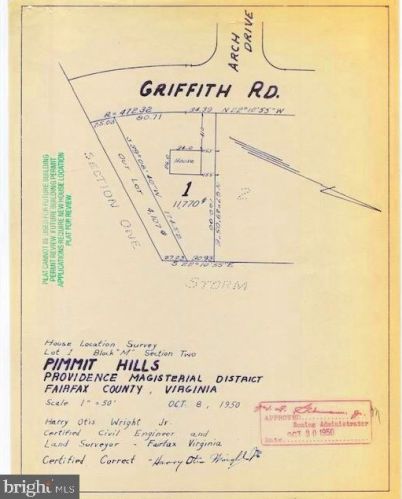 ARCH DRIVE
GRIFFITH RD.
R= 472.32
80.71
34.39
N 22° 10' 55" W
25.03
PLAT CANNOT BE USED FOR FUTURE BUILDING
PERMIT REVIEW. FUTURE BUILDING PERMIT
APPLICATIONS REQUIRE NEW HOUSE LOCATION
PLAT FOR REVIEW
SECTION ONE
OUT LOT
4,107 #
174.52
24.0
House
1
11,770 #
27.23
30.93
S 22° 10' 55" E
STORM
House Location Survey
Lot 1 Block "M" Section Two
PIMMIT HILLS
PROVIDENCE MAGISTERIAL DISTRICT
FAIRFAX COUNTY, VIRGINIA
Scale 1" = 50' OCT 8, 1950
Harry Otis Wright Jr.
Certified Civil Engineer and
Land Surveyor - Fairfax Virginia
Certified Correct - Harry Otis Wright Jr
APPROVED
Zoning Administrator
Date OCT 30 1950
© bright MLS